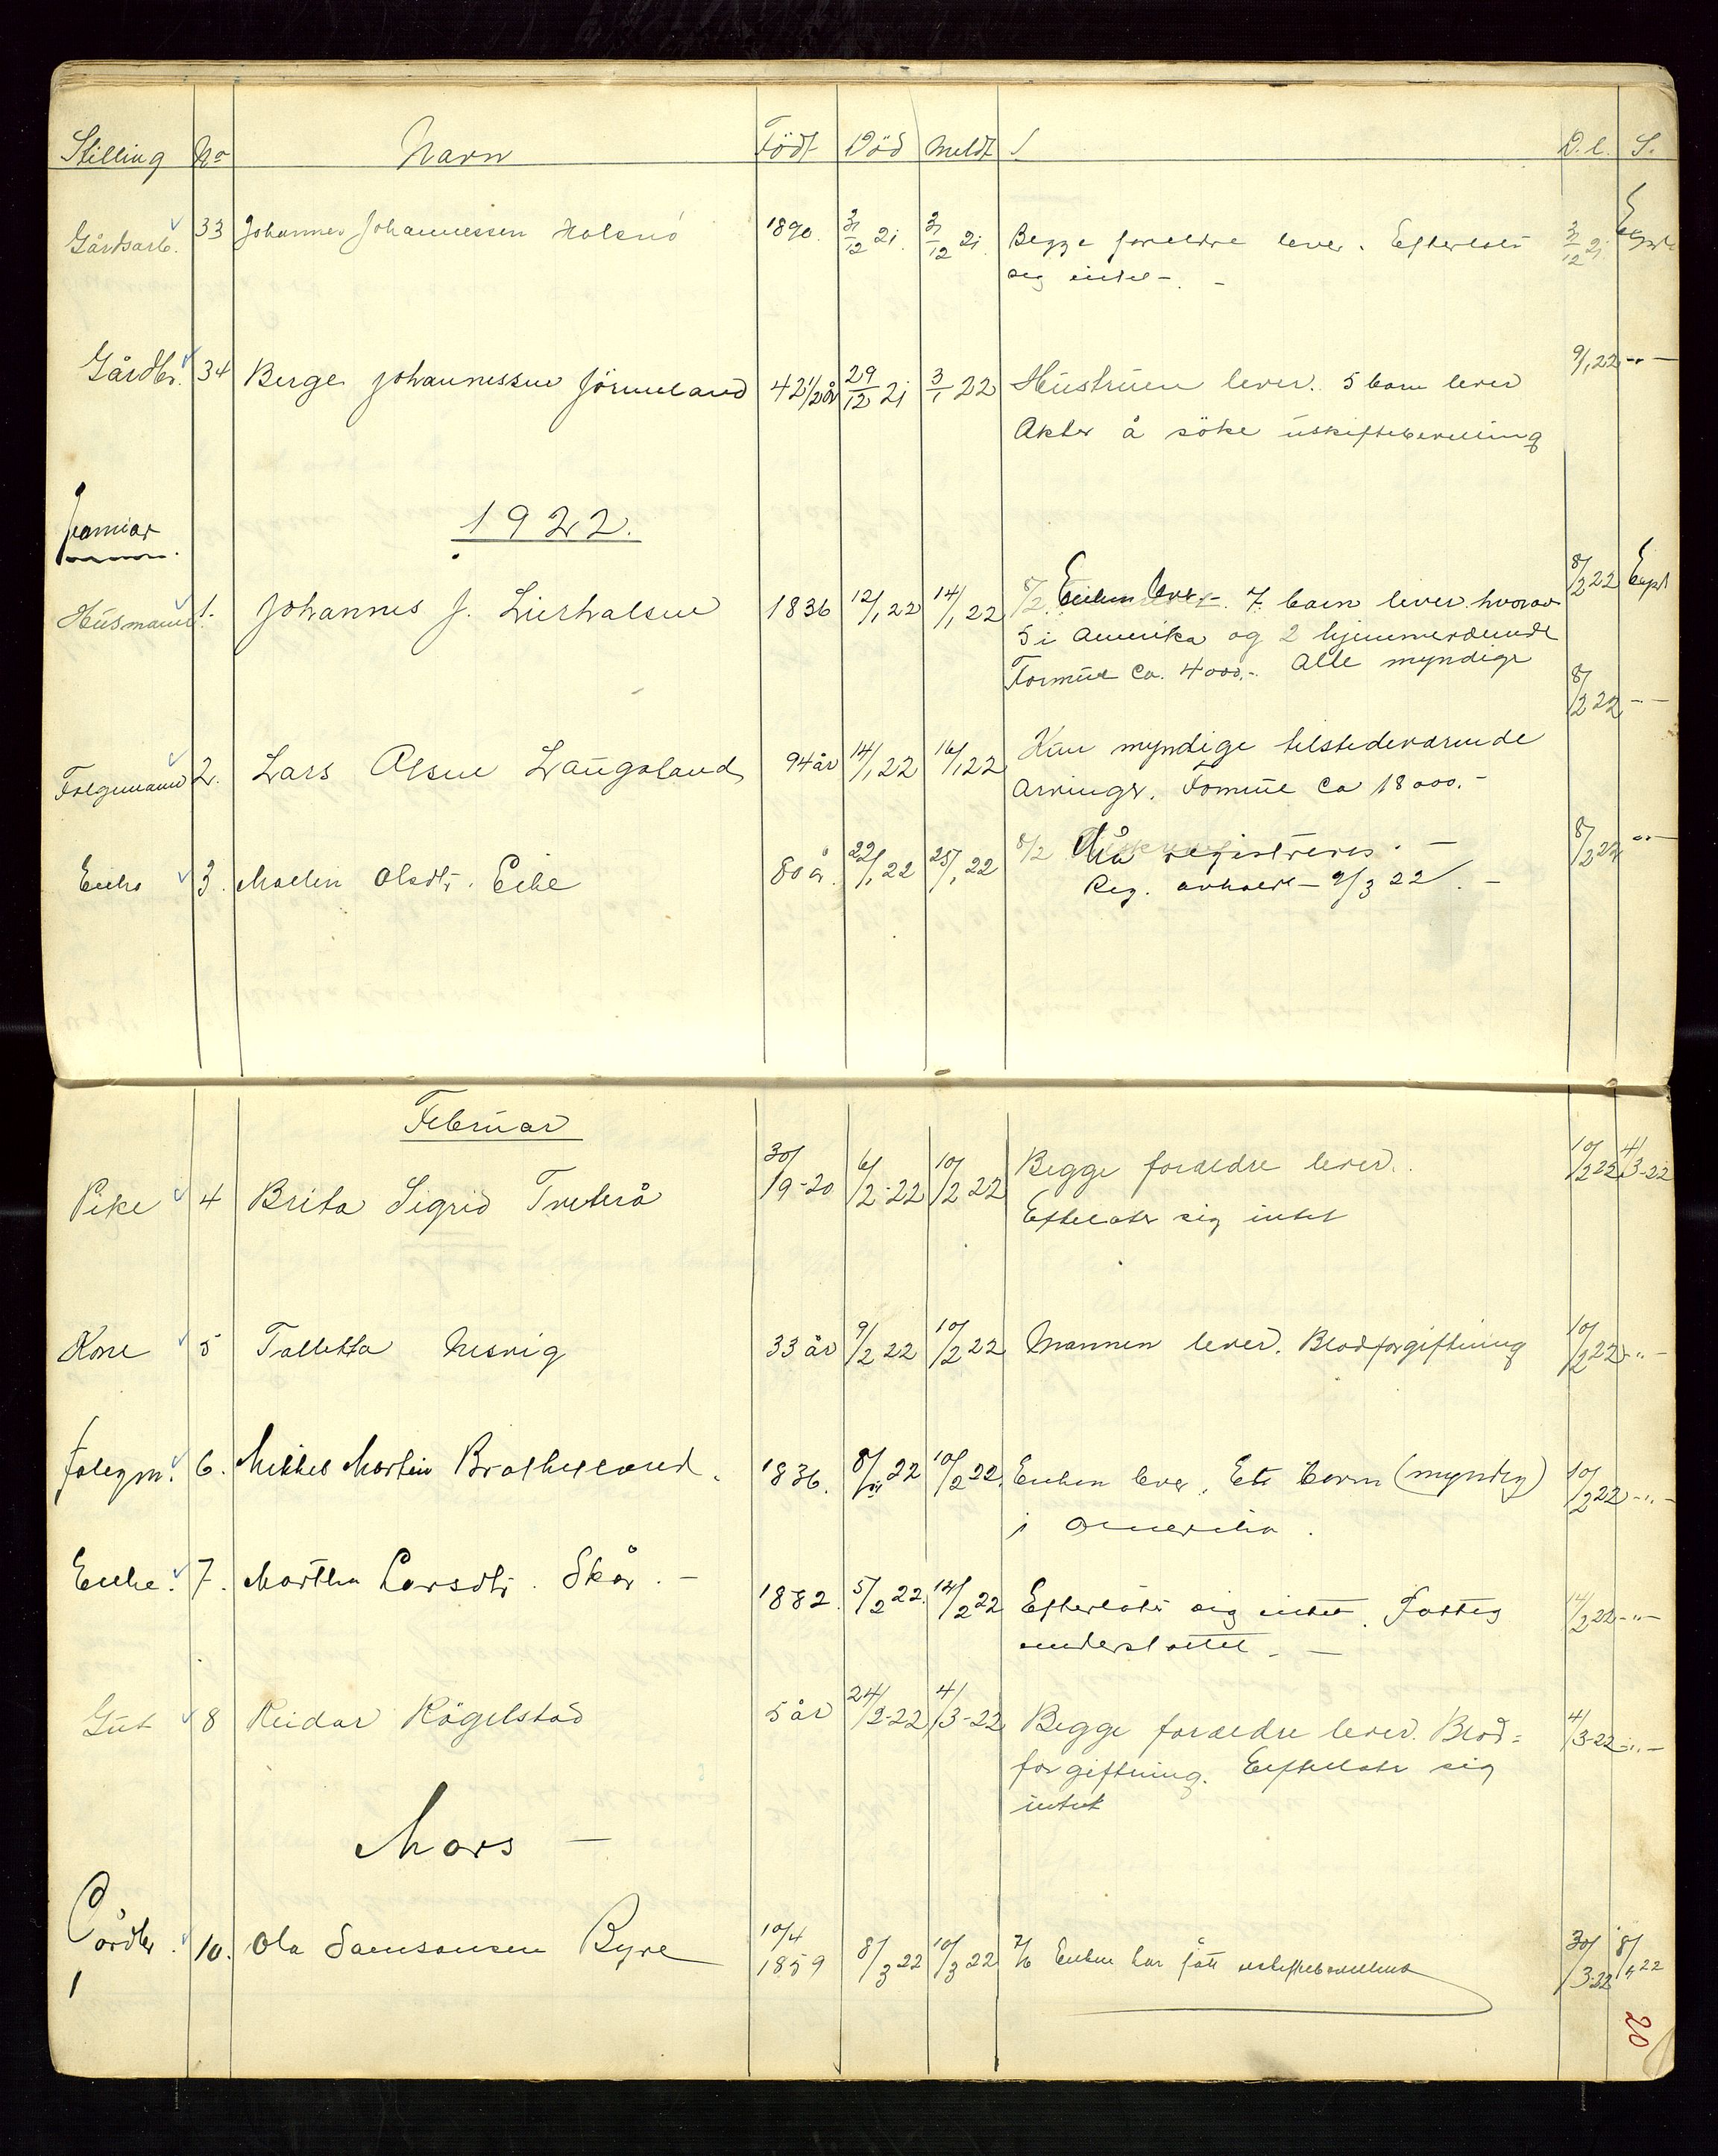 Stilling No Navn Födt Död Meldt D.l. S.
Gårdsarb. 33 Johannes Johannessen Halsnö 1890. 31/12 21. 31/12 21. Begge foreldre lever. Efterlots 31/12 21. Expd
sig intet -. -
Gårdbr. 34 Berge Johannessen Jörmeland 42 1/2 år 29/12 21 3/1 22 Hustruen lever. 5 barn lever 9/1 22 -"-
Akter å söke uskiftebevilling
Januar
1922.
Husmann 1. Johannes J. 1836 12/1 22 14/1 22 8/2. Enken lever. 7 barn lever hvorav 8/2 22 Expd
5 i Amerika og 2 hjemmeværende
Formue Ca. 4000.-. Alle myndige
Folgemann 2. Lars Olsen Laugaland 94 år 14/1 22 16/1 22 Kun myndige tilstedeværende 8/2 22 - -
arvinger. Formue Ca 18000.-
Enke 3. Malin Olsdtr. Eike 80 år. 22/1 22 25/1 22 8/2 Må registreres. - 8/2 22 -"-
Reg. avholdt - 9/3 22. -
Februar
Pike 4 Brita Sigrid Tveterå 30/9-20 6/2-22 10/2 22 Begge foreldre lever. 10/2 22 4/3-22
Efterlater sig intet
Kone 5 Talletta Nesvig 33 år 9/2 22 10/2 22 Mannen lever. Blodforgiftning 10/2 22 -"-
Folegm. 6. Mikkel Martin Bratheland. 1836. 8/2 22 10/2 22. Enken lever. Ett barn (myndig) 10/2 22 -"-
i Amerika.
Enke. 7. Martha Larsdtr. Skår. - 1882. 5/2 22. 14/2 22 Efterlots sig intet. Fattig 14/2 22 -"-
understøttet. -
Gut 8 Reidar Rägelstad 5 år 24/2-22 4/3-22 Begge foreldre lever. Blod= 4/3-22 -"-
forgiftning. Efterlater sig
intet
Mars -
Gårdbr. 10. Ola Samsonsen Byre 10/4 1859 8/3 22 10/3 22 7/6 Enken har fått uskiftebevilling 30/3-22 8/4 22
20